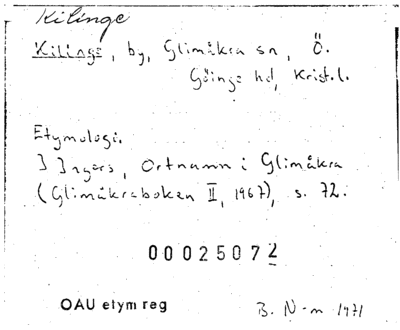 Kilinge
Kilinge, by, Glimåkra sn, Ö.
Göinge hd, Kristl.
Etymologi.
I Ingers, Ortnamn i Glimåkra
(Glimåkraboken II, 1967), s. 72.
00025072
OAU etym reg
B. N-m 1971